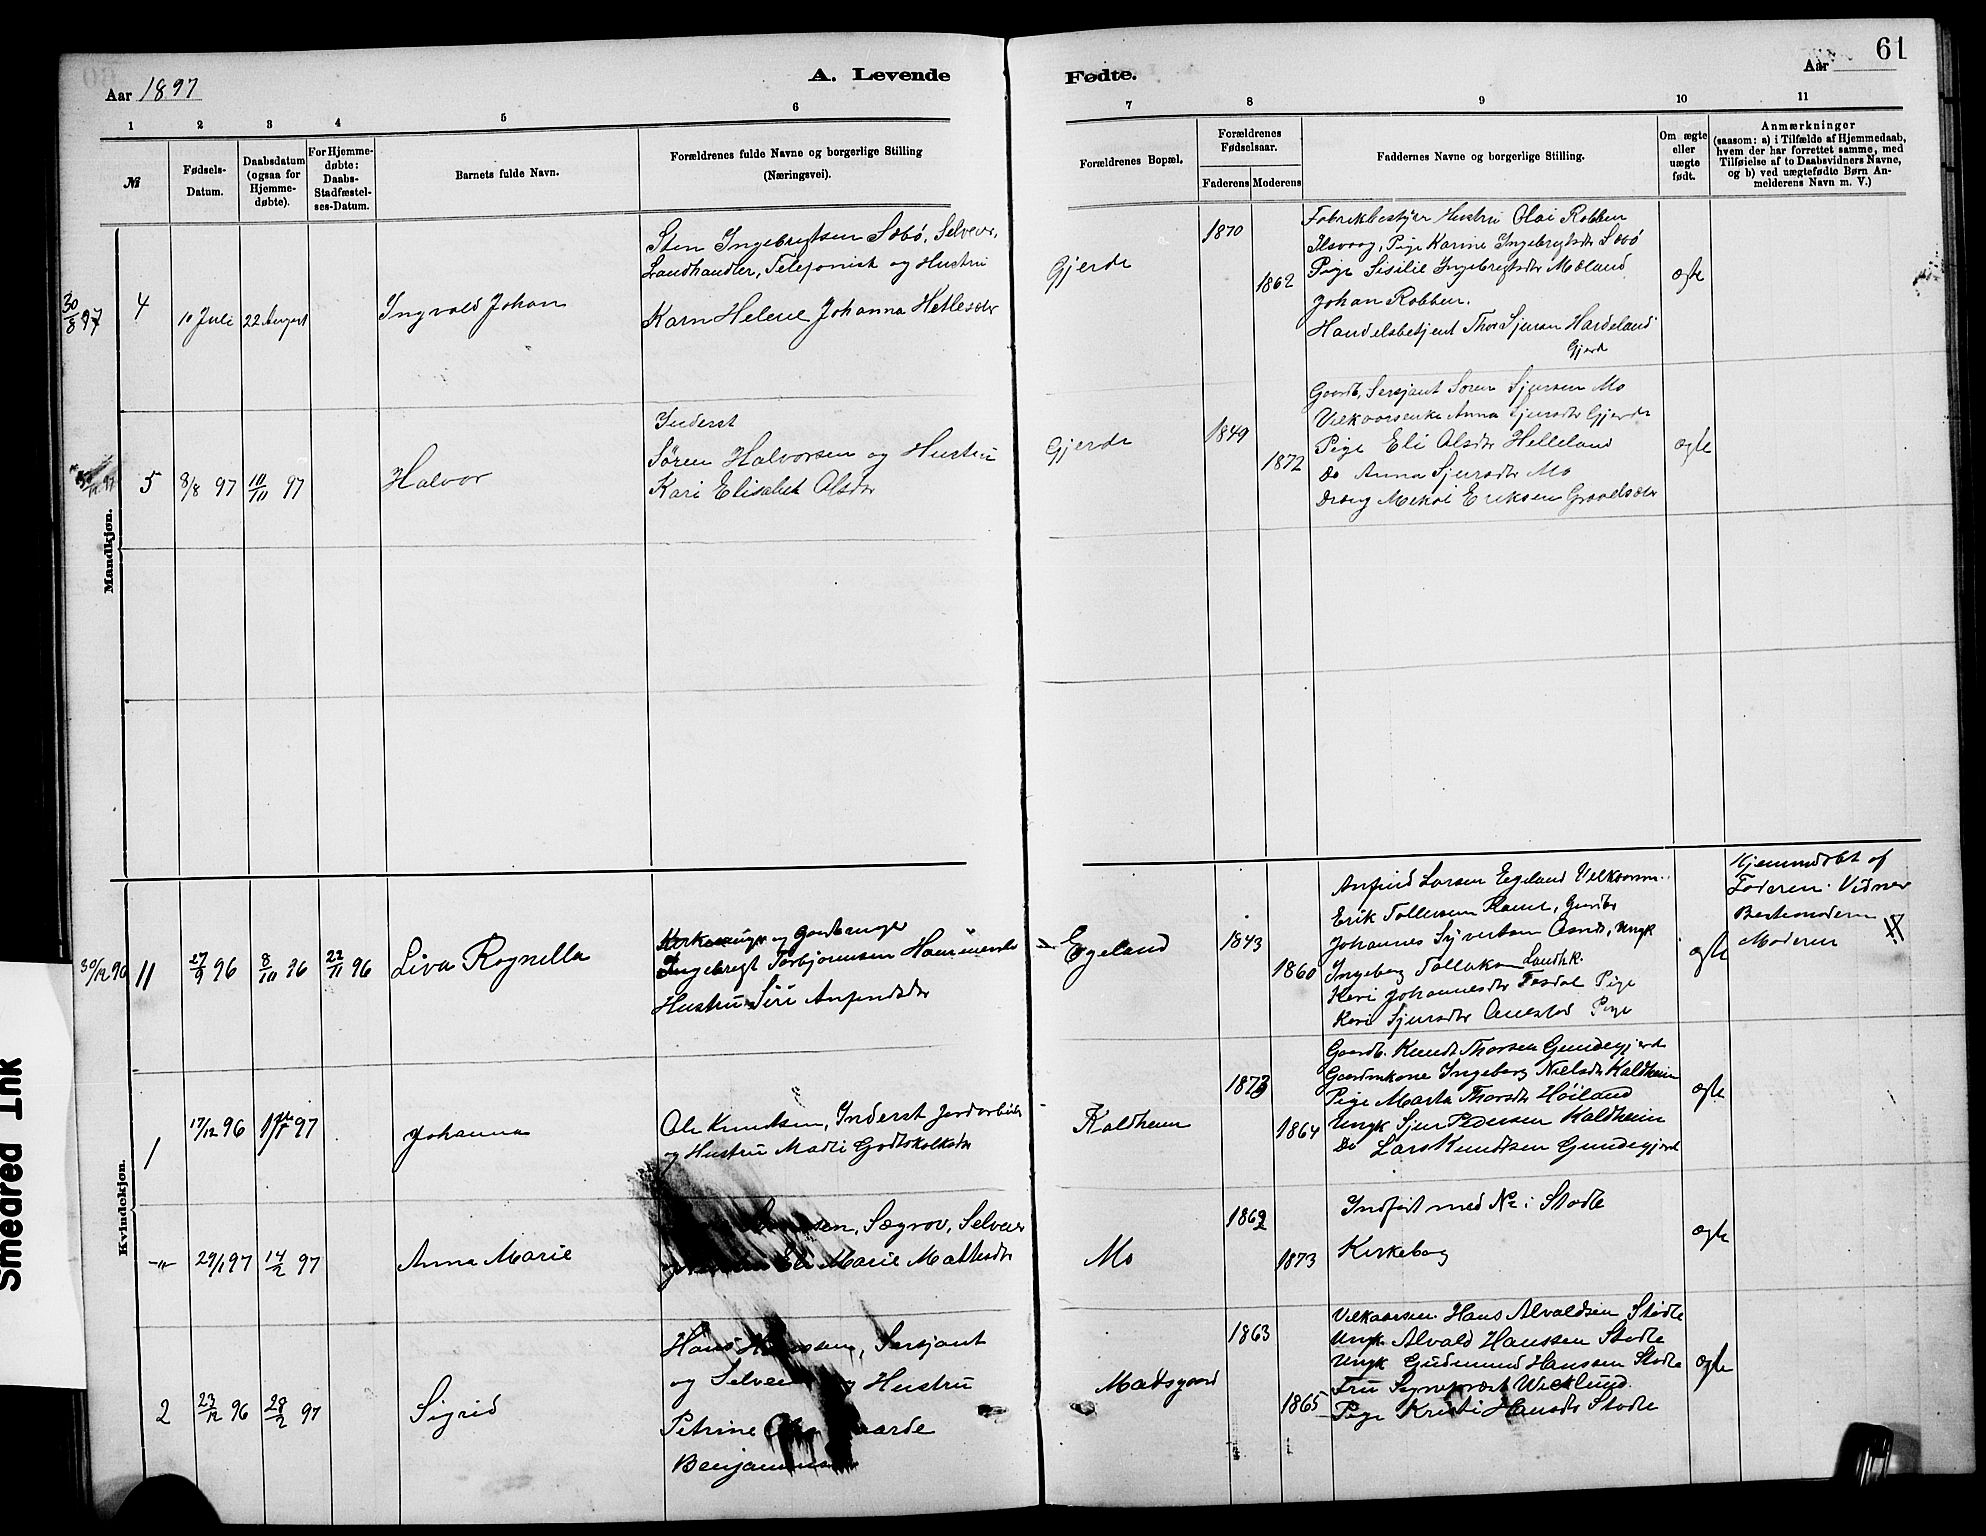 Aar 1897
A. Levende
Fødte.
Aar
61
1
2
3
4
5
6
7
8
9
10
11
№
Fødsels-
Datum.
Daabsdatum
(ogsaa for
Hjemme-
døbte).
For Hjemme-
døbte:
Daabs-
Stadfæstel-
ses-Datum.
Barnets fulde Navn.
Forældrenes fulde Navne og borgerlige Stilling
(Næringsvei).
Forældrenes Bopæl.
Forældrenes
Fødselsaar.
Faderens
Moderens
Faddernes Navne og borgerlige Stilling.
Om ægte
eller
uægte
født.
Anmærkninger
(saasom: a) i Tilfælde af Hjemmedaab,
hvem der har forrettet samme, med
Tilføielse af to Daabsvidners Navne,
og b) ved uægtefødte Børn An-
melderens Navn m. V.)
Mandkjøn.
30/8 97
4
10 Juli
22 August
Ingvald Johan
Sten Ingebrigtsen Sæbø, Selveier,
Landhandler, Telefonist og Hustru
Karn Helene Johanna Hetlesæter
Gjerde
1870
1862
Fabrikbestyrer Hustru Olai Robben
Ilsvaag, Pige Karine Ingebrigtsdr Sæbø
Pige Sisilie Ingebrigtsdr Mæland
Johan Robben.
Handelsbetjent Thor Sjursen Hardeland
Gjerde
ægte
5
8/8 97
10/10 97
Halvor
Inderst
Søren Halvorsen og Hustru
Kari Elisabet Olsdr
Gjerde
1849
1872
Gaardb. Sersjant Søren Sjursen Mo
Vilkaarsenke Anna Sjursdtr Gjerde
Pige Eli Olsdtr Helleland
Do Anna Sjursdtr Mo
Dreng Mekal Eriksen Graadsæter
ægte
Kvindekjøn.
30/12 96
11
27/9 96
8/10 96
22/11 96
Liva Ragnella
Kirkesanger og Gaardbruger
Ingebregt Torbjørnsen
Hustru Siri Anfindsdr
Egeland
1843
1860
Anfind Larsen Egeland Vilkaarsm.
Erik Tollefsen
Johannes Syvertsen
Ingeborg Tollaksen Landh.
Kari Johannesdtr Fosdal Pige
Kari Sjursdtr Pige
ægte
Hjemmedøbt af
Faderen. Vidner
Bestemoderen
Moderen
1
17/12 96
1ste/1 97
Johanna
Ole Knudsen, Inderst Jordarbeider
og Hustru Madli Godtskalksdr
Kaldheim
1873
1864
Gaardb. Knudt Thorsen Gundegjerde
Gaardmkone Ingeborg Nielsdtr Kaldheim
Pige Marta Thorsdtr Høiland
Ungk Sjur Pedersen Kaldheim
Do Lars Knudtsen Gundegjerde
ægte
-"-
29/1 97
14/2 97
Anna Marie
Sægrov, Selveier
Eli Marie Mattesdr
Mo
1862
1873
Indført med № i Stødle
Kirkebog
ægte
2
23/12 96
28/2 97
Sigrid
Hans Hanssen, Sersjant
og Selveier og Hustru
Petrine
Benjaminsen
Madsgaard
1863
1865
Vilkaarsm. Hans Alvaldsen Stødle
Ungk. Alvald Hanssen Stødle
Ungk Gudmund Hanssen Stødle
Fru Sogneprest Wicklund.
Pige Kristi Hansdtr Stødle
ægte
Smeared Ink